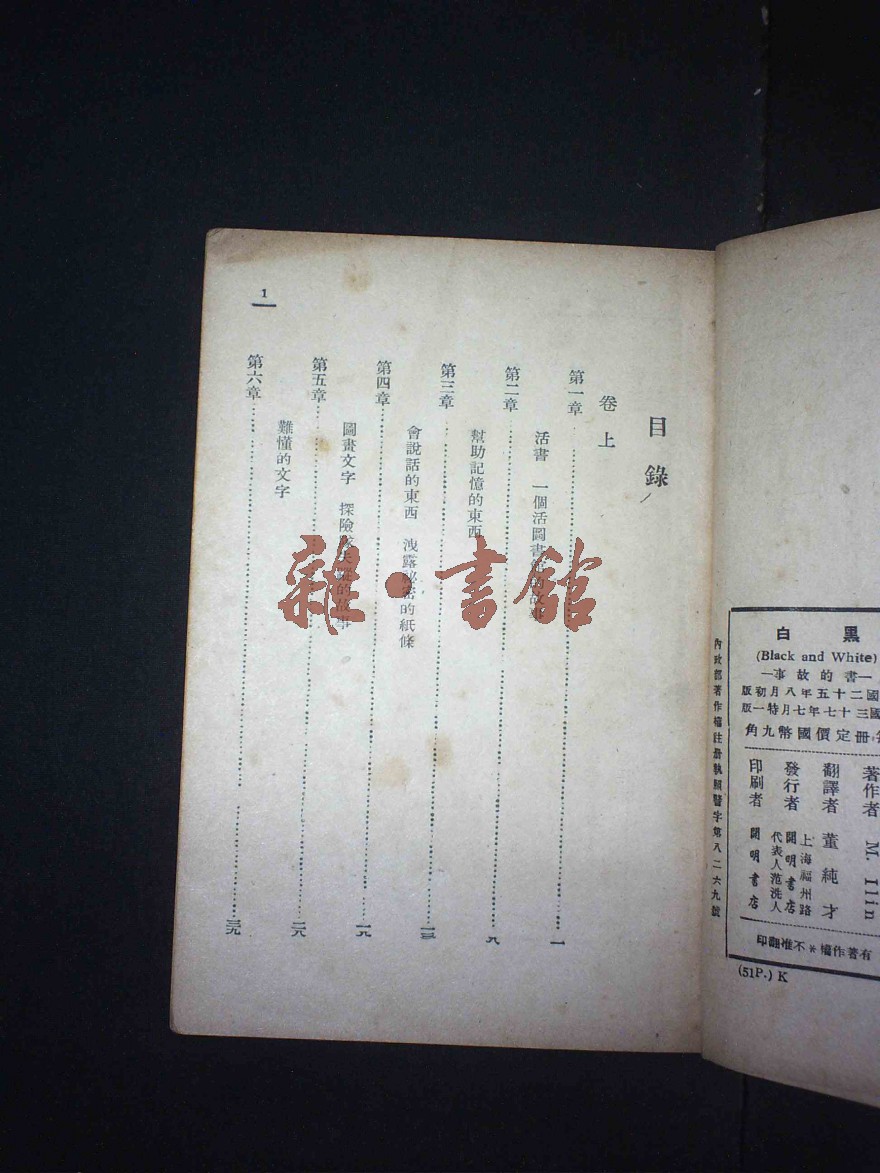 黑白
(Black and White)
—書的故事—
國二十五年八月初版
國三十七年七月特一版
册定價國幣九角
著作者 M. Ilin
翻譯者 董純才
發行者 上海福州路 開明書店 代表人范洗人
印刷者 開明書店
有著作權＊不准翻印
內政部著作權註册執照警字第八二六九號
(51P.) K
目錄
卷上
第一章 一
活書 一個活圖書館的故事
第二章 九
幫助記憶的東西
第三章 一三
會說話的東西 洩露祕密的紙條
第四章 一九
圖畫文字 探險隊失蹤的故事
第五章 二九
難懂的文字
第六章 三九
1
雜·書館